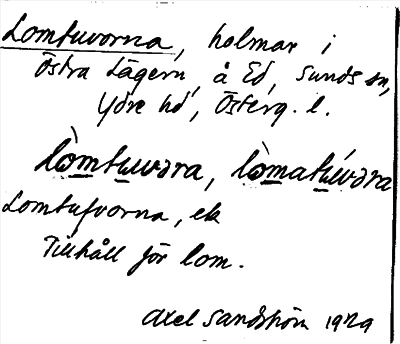 Lomtuvorna, holmar i
Östra Lägern, å Ed, Sunds sn,
Ydre hd, Österg. l.
lòmtuvəra, lòmatúvəra
Lomtufvorna, ek
Tillhåll för lom.
Axel Sandström 1929